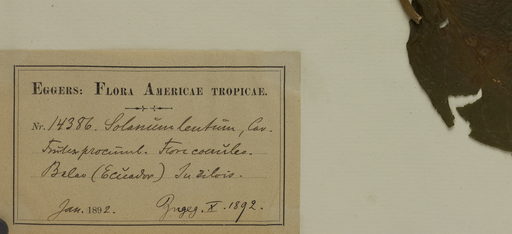 EGGERS: FLORA AMERICAE TROPICAE.
Nr. 14386. Solanum lentum, Cav.
Frutex procumb. Flore coeruleo.
Balao (Ecuador) In silvis.
Jan. 1892. X. 1892.